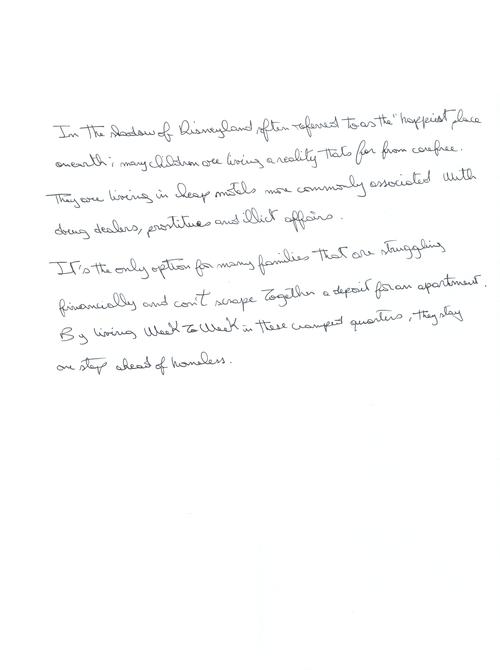 In the shadow of Disneyland, often referred to as the "happiest place
on earth; many children are living a reality thats far from carefree.
They are living in cheap motels more commonly associated with
drug dealers, prostitues and illict affairs.
It's the only option for many families that are struggling
financially and can't scrape together a deposit for an apartment.
By living week to week in these cramped quarters, they stay
one step ahead of homeless.